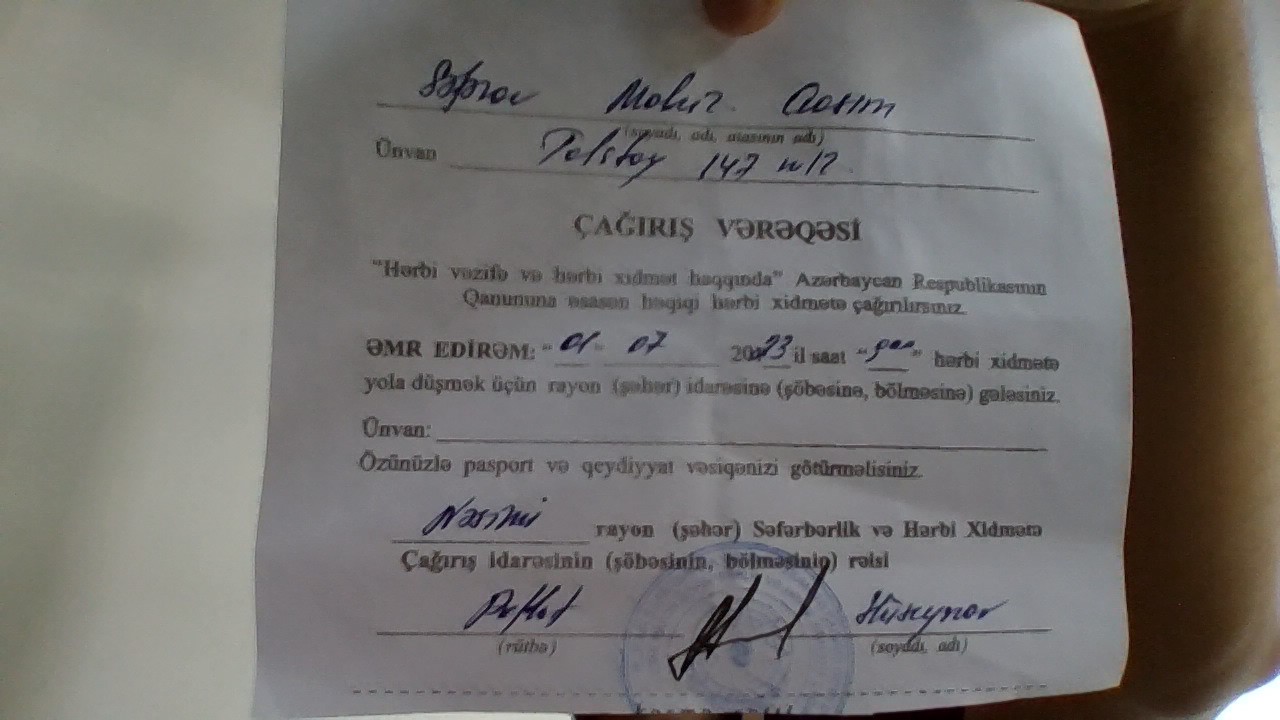 (soyadı, adı, atasının adı)
Ünvan Tolstoy 147 m/2
ÇAĞIRIŞ VƏRƏQƏSİ
“Hərbi vəzifə və hərbi xidmət haqqında” Azərbaycan Respublikasının
Qanununa əsasən həqiqi hərbi xidmətə çağırılırsınız.
ƏMR EDİRƏM: “01” 07 2023 il saat “ ” hərbi xidmətə
yola düşmək üçün rayon (şəhər) idarəsinə (şöbəsinə, bölməsinə) gələsiniz.
Ünvan:
Özünüzlə pasport və qeydiyyat vəsiqənizi götürməlisiniz.
Nəsimi rayon (şəhər) Səfərbərlik və Hərbi Xidmətə
Çağırış idarəsinin (şöbəsinin, bölməsinin) rəisi
Hüseynov
(rütbə) (soyadı, adı)